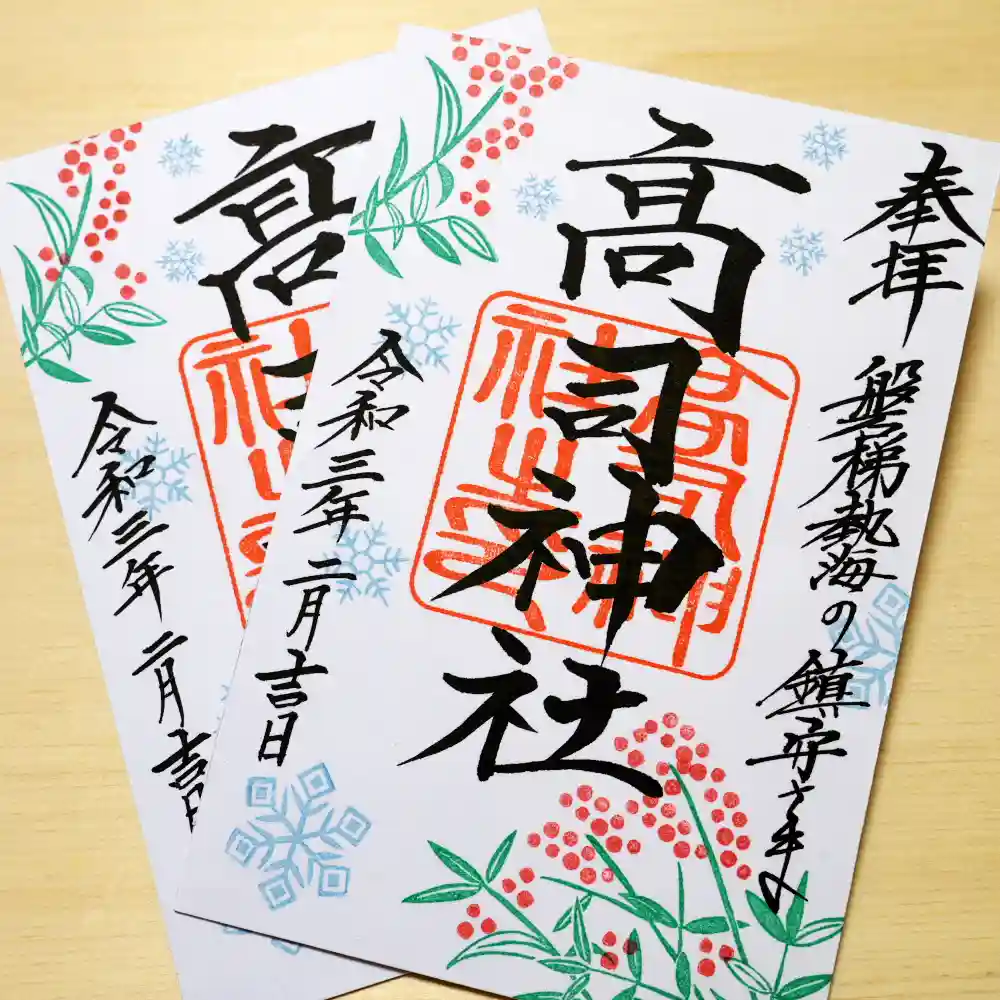 奉拝
磐梯熱海の鎮守さま
高司神社
令和三年二月吉日
高
令和三年二月吉日